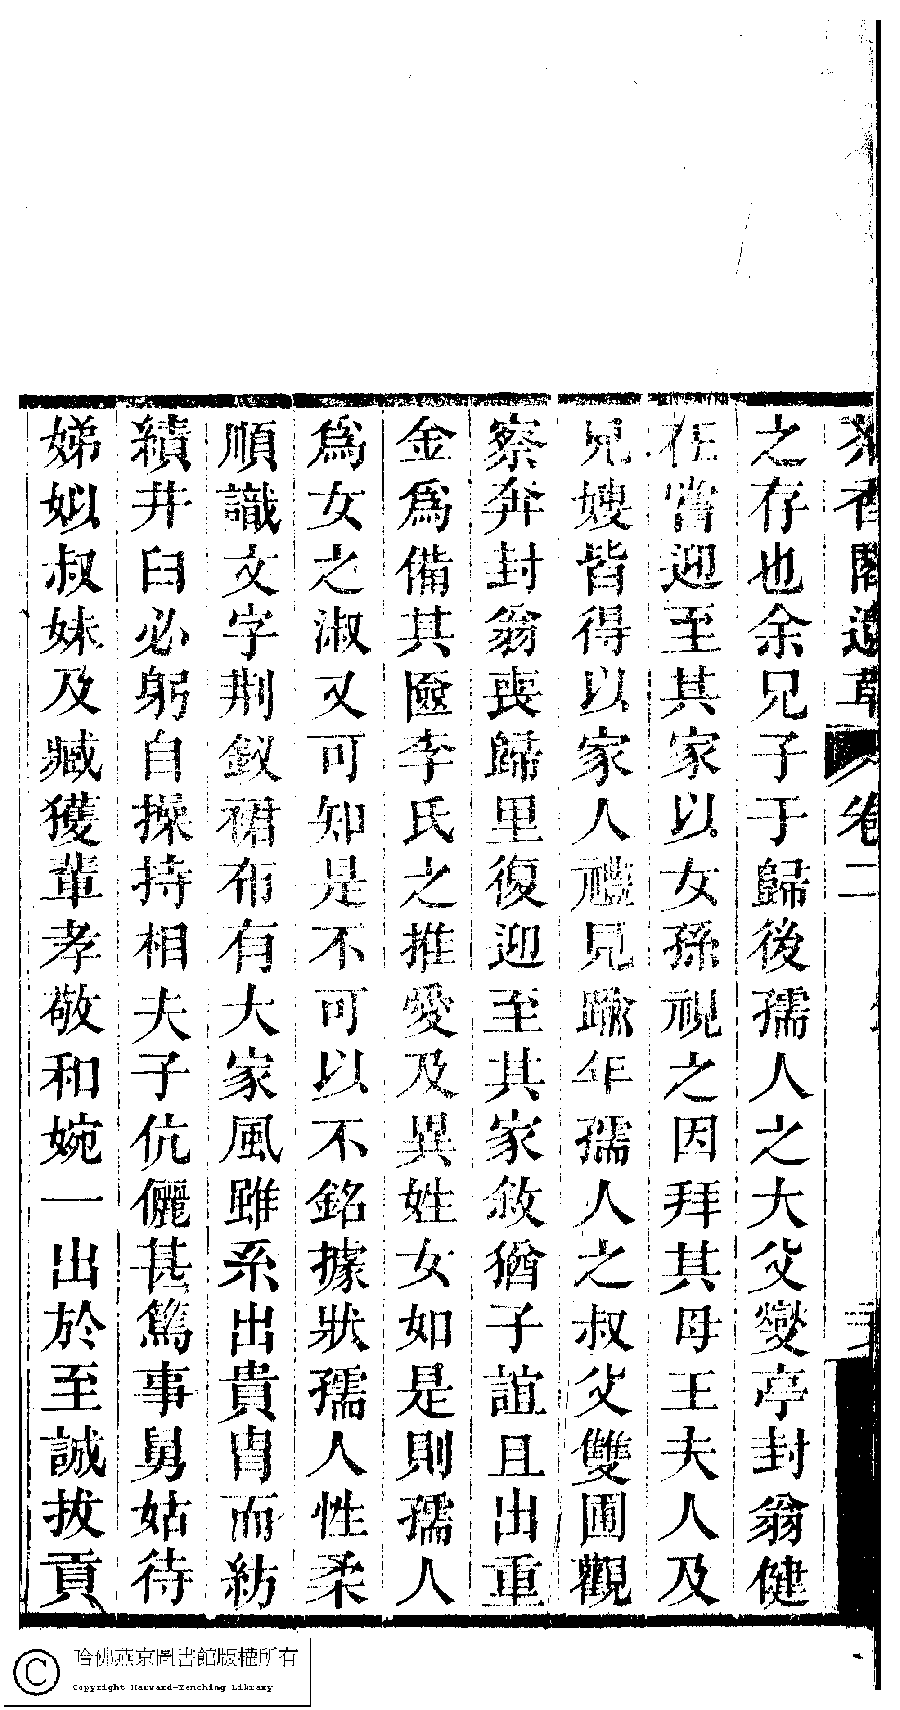 香閣遺草 卷二
之存也余兄子于歸後孺人之大父燮亭封翁健
在嘗迎至其家以女孫視之因拜其母王夫人及
兄嫂皆得以家人禮見踰年孺人之叔父雙圃觀
察奔封翁喪歸里復迎至其家敘猶子誼且出重
金爲備其匳李氏之推愛及異姓女如是則孺人
爲女之淑又可知是不可以不銘據狀孺人性柔
順識文字荆釵裙布有大家風雖系出貴胄而紡
績井臼必躬自操持相夫子伉儷甚篤事舅姑待
娣姒叔妹及臧獲輩孝敬和婉一出於至誠拔貢
哈佛燕京圖書館版權所有
Copyright Harvard-Yenching Library